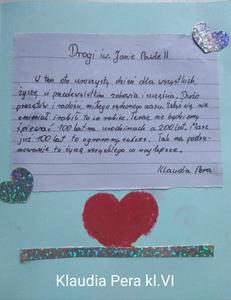 Drogi św. Janie Pawle II
W tym dniu uroczysty dzień dla wszystkich,
życzę ci przedewszystkim zdrowia i szczęścia. Dużo
prezętów i radość, miłego rodzinego czasu. Żebyś się nie
zmieniał i robił to co robisz. Teraz nie będziemy
śpiewać 100 lat na urodzinach a 200 lat. Masz
już 100 lat to ogromny sukces. Tak na podsu-
mowanie to życzę wszystkiego co najlepsze.
Klaudia Pera
Klaudia Pera kl.VI